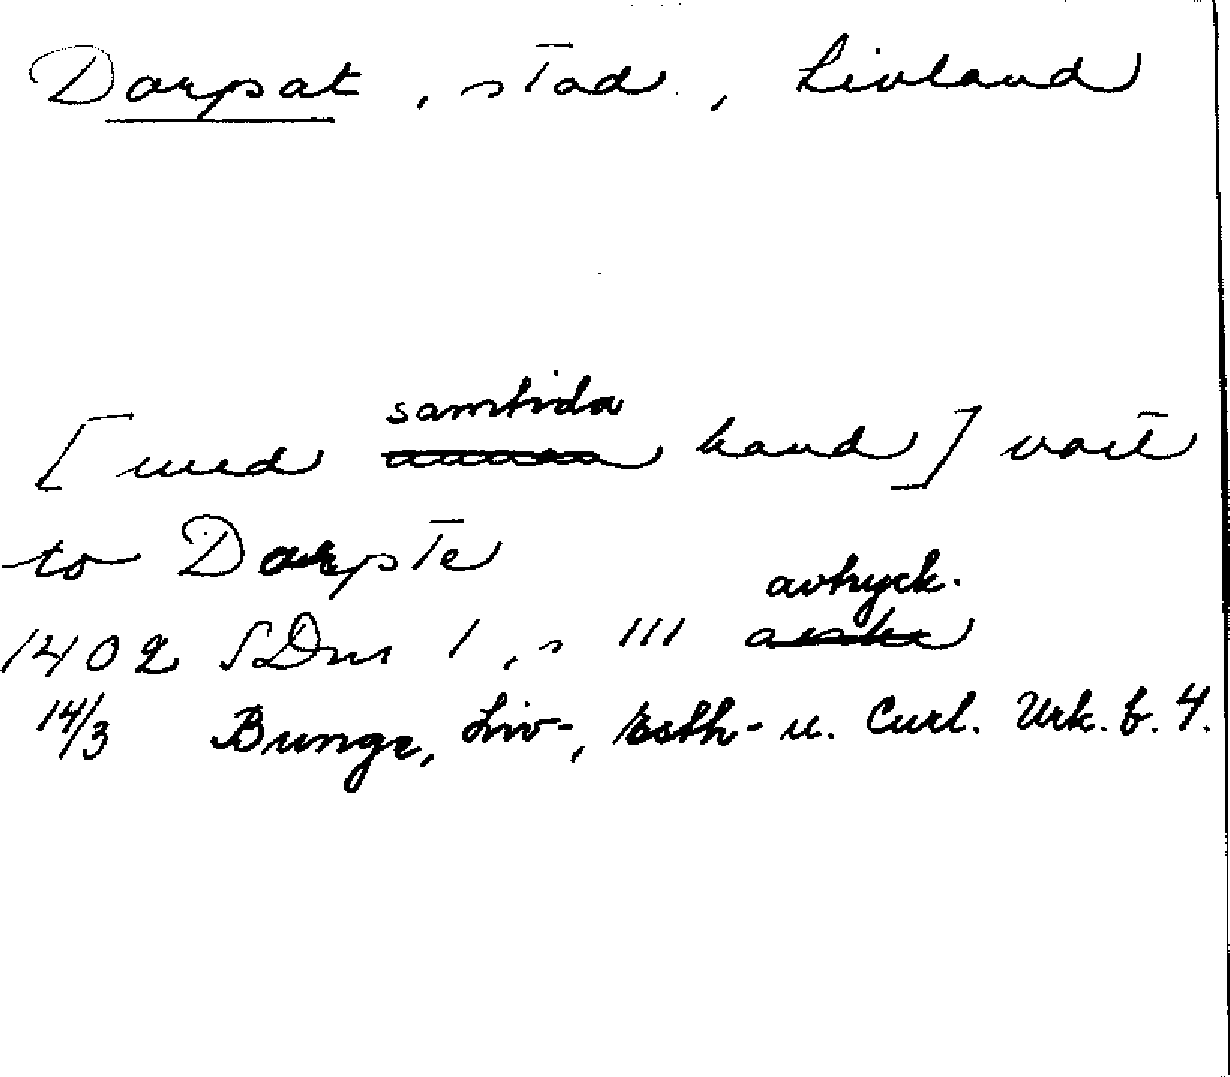 Dorpat, stad, Livland
[med samtida hand] vait
to Darpte
1402 SDns 1, s 111 avtryck.
14/3 Bunge, Liv-, Esth- u. Curl. Urk. b. 4.